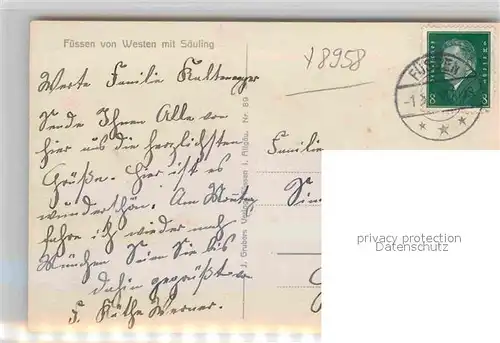 Füssen von Westen mit Säuling
Y8958
FÜSSEN
8 8
Werte Familie Kaltenegger
Sende Ihnen Alle von
hier aus die herzlichsten
Grüße. Hier ist es
wunderschön. Am Montag
fahre ich wieder nach
München Seien Sie bis
dahin gegrüßt v.
F. Käthe Werner.
J. Grubers Verlag, Füssen i. Allgäu. Nr. 89
Familie
privacy protection
Datenschutz